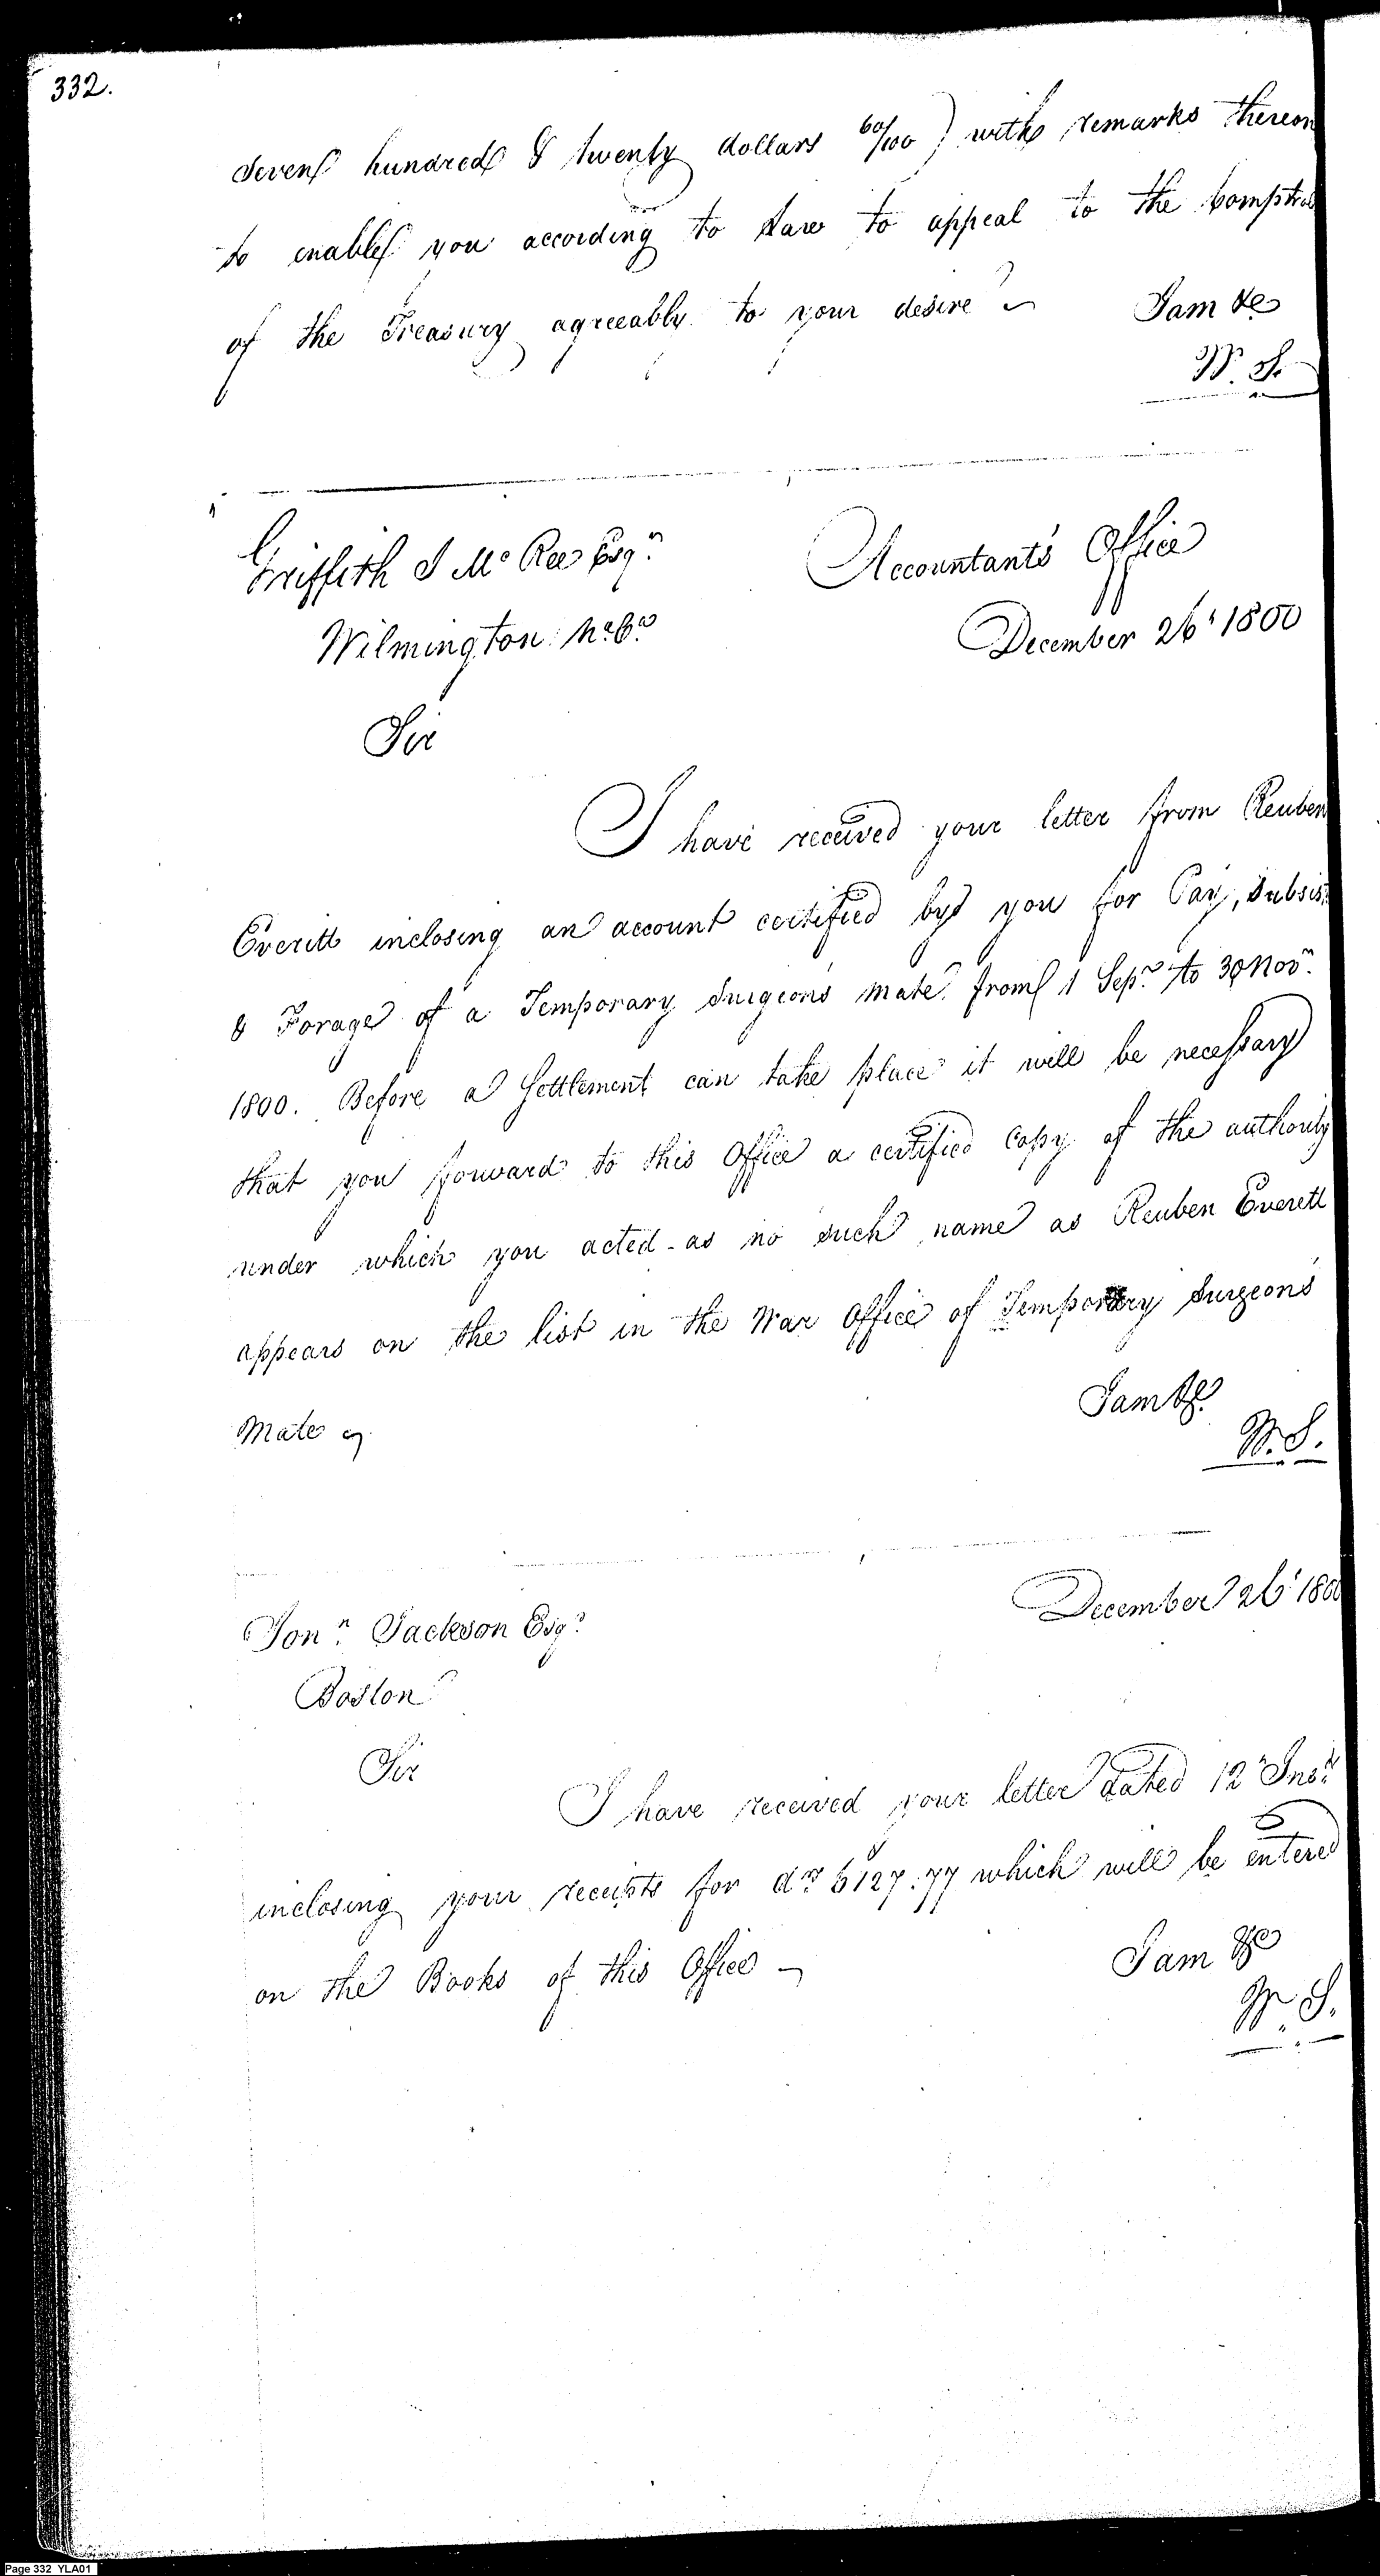 332.
Seven hundred & twenty dollars 60/100) with remarks thereon
to enable you according to Law to appeal to the Comptrol
of the Treasury agreeably to your desire
I am &c
W. S.
Griffith J McRee Esqr.
Accountant's Office
Wilmington No. Ca.
December 26t 1800
Sir
I have received your letter from Reuben
Everitt inclosing an account certified by you for Pay, Subsis.
& Forage of a Temporary Surgeons Mate from 1 Sepr. to 30 Novr.
1800. Before a Settlement can take place it will be necessary
that you forward to this Office a certified Copy of the authority
under which you acted - as no such name as Reuben Everett
appears on the list in the War Office of Temporary Surgeons
Mate
I am &c.
W. S.
December 26t 1800
Jonn. Jackson Esqr.
Boston
Sir
I have received your letter dated 12 Inst.
inclosing your receipts for drs. 6127.77 which will be entered
on the Books of this Office -
I am &c
W. S.
Page 332 YLA01